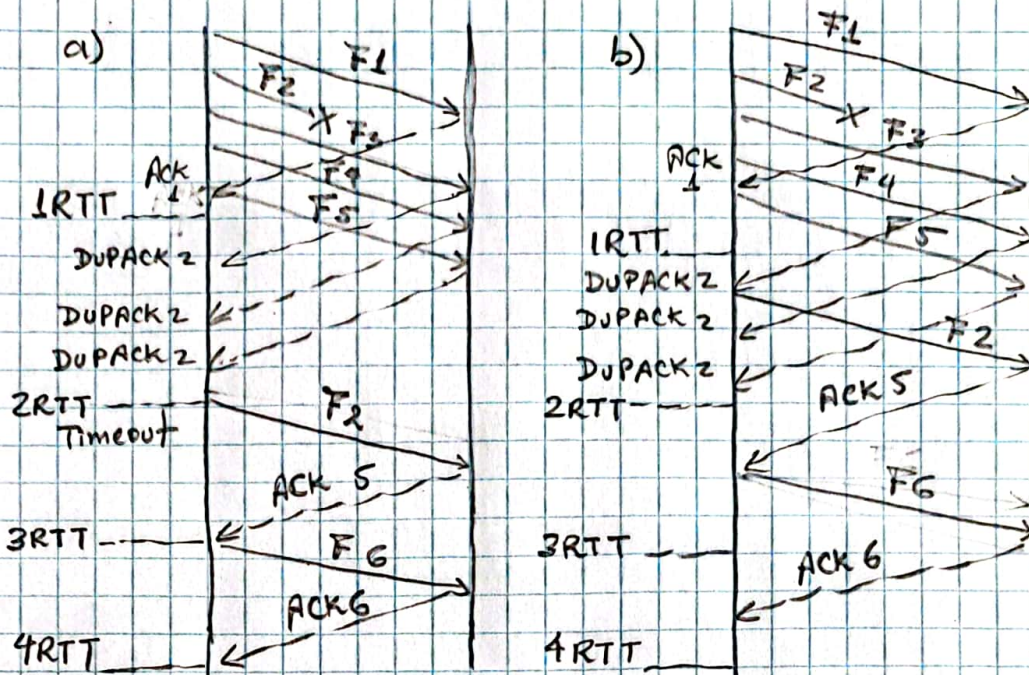 a)
F1
F2
F3
ACK
1
F4
1RTT
F5
DUPACK 2
DUPACK 2
DUPACK 2
2RTT
Timeout
F2
ACK 5
3RTT
F6
ACK 6
4RTT
b)
F1
F2
F3
ACK
1
F4
F5
1RTT
DUPACK 2
DUPACK 2
F2
DUPACK 2
ACK 5
2RTT
F6
3RTT
ACK 6
4RTT